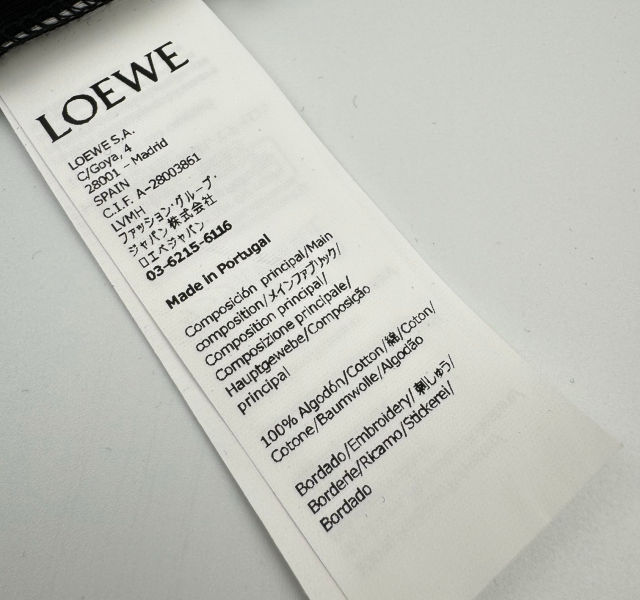 LOEWE
LOEWE S.A.
C/Goya, 4
28001 – Madrid
SPAIN
C.I.F. A-28003861
LVMH
ファッション・グループ・
ジャパン株式会社
ロエベジャパン
03-6215-6116
Made in Portugal
Composición principal/Main
composition/メインファブリック/
Composition principal/
Composizione principale/
Hauptgewebe/Composição
principal
100% Algodón/Cotton/綿/Coton/
Cotone/Baumwolle/Algodão
Bordado/Embroidery/刺しゅう/
Borderie/Ricamo/Stickerei/
Bordado